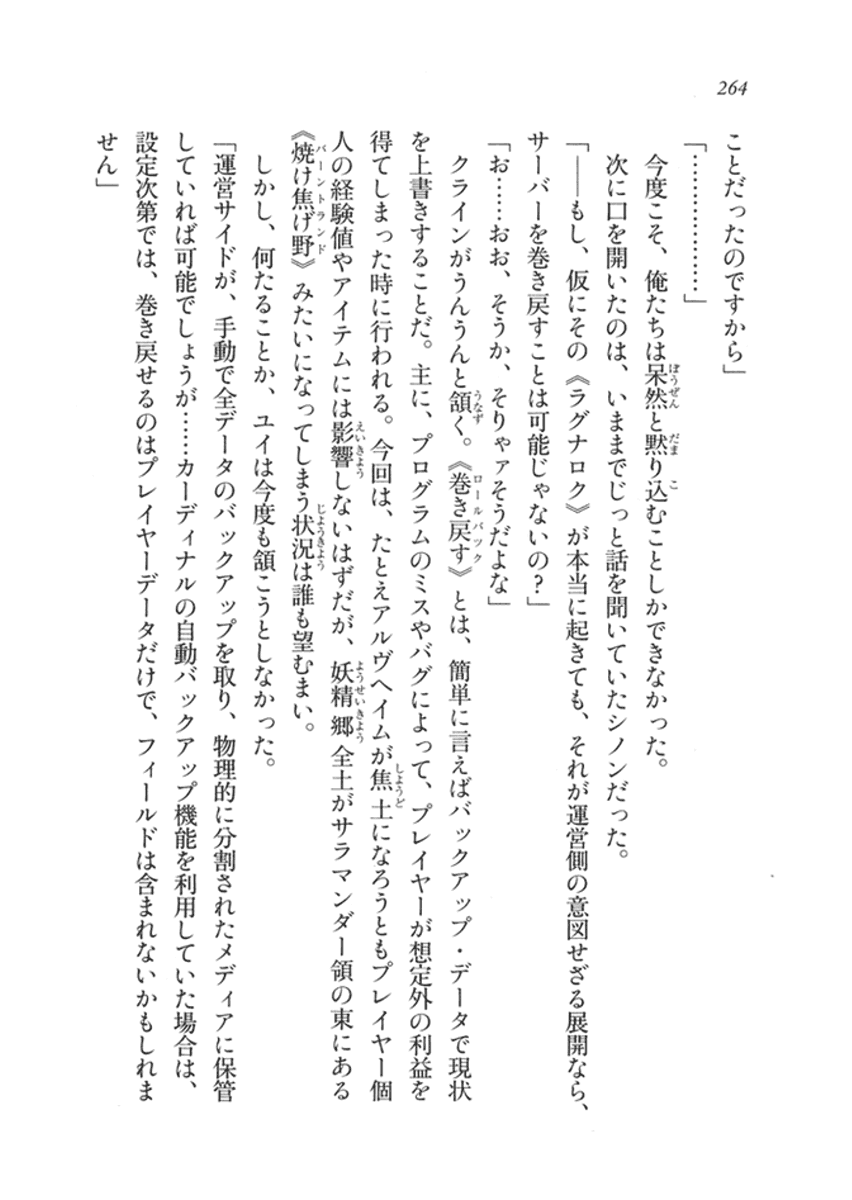 264
ことだったのですから」
「………………」
今度こそ、俺たちは呆然と黙り込むことしかできなかった。
次に口を開いたのは、いままでじっと話を聞いていたシノンだった。
「――もし、仮にその《ラグナロク》が本当に起きても、それが運営側の意図せざる展開なら、
サーバーを巻き戻すことは可能じゃないの？」
「お……おお、そうか、そりゃァそうだよな」
クラインがうんうんと頷く。《巻き戻す》とは、簡単に言えばバックアップ・データで現状
を上書きすることだ。主に、プログラムのミスやバグによって、プレイヤーが想定外の利益を
得てしまった時に行われる。今回は、たとえアルヴヘイムが焦土になろうともプレイヤー個
人の経験値やアイテムには影響しないはずだが、妖精郷全土がサラマンダー領の東にある
《焼け焦げ野》みたいになってしまう状況は誰も望むまい。
しかし、何たることか、ユイは今度も頷こうとしなかった。
「運営サイドが、手動で全データのバックアップを取り、物理的に分割されたメディアに保管
していれば可能でしょうが……カーディナルの自動バックアップ機能を利用していた場合は、
設定次第では、巻き戻せるのはプレイヤーデータだけで、フィールドは含まれないかもしれま
せん」